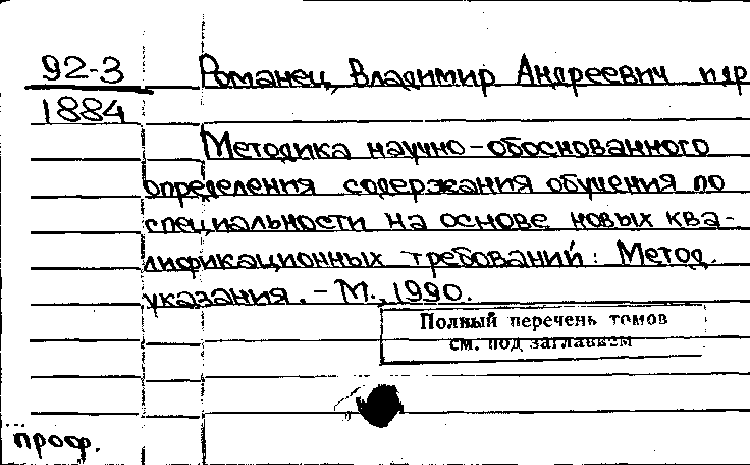 92-3 Романец, Владимир Андреевич и др
1884
Методика научно-обоснованного
определения содержания обучения по
специальности на основе новых ква-
лификационных требований: Метод.
указания. - М., 1990.
Полный перечень томов
см. под заглавием
проф.